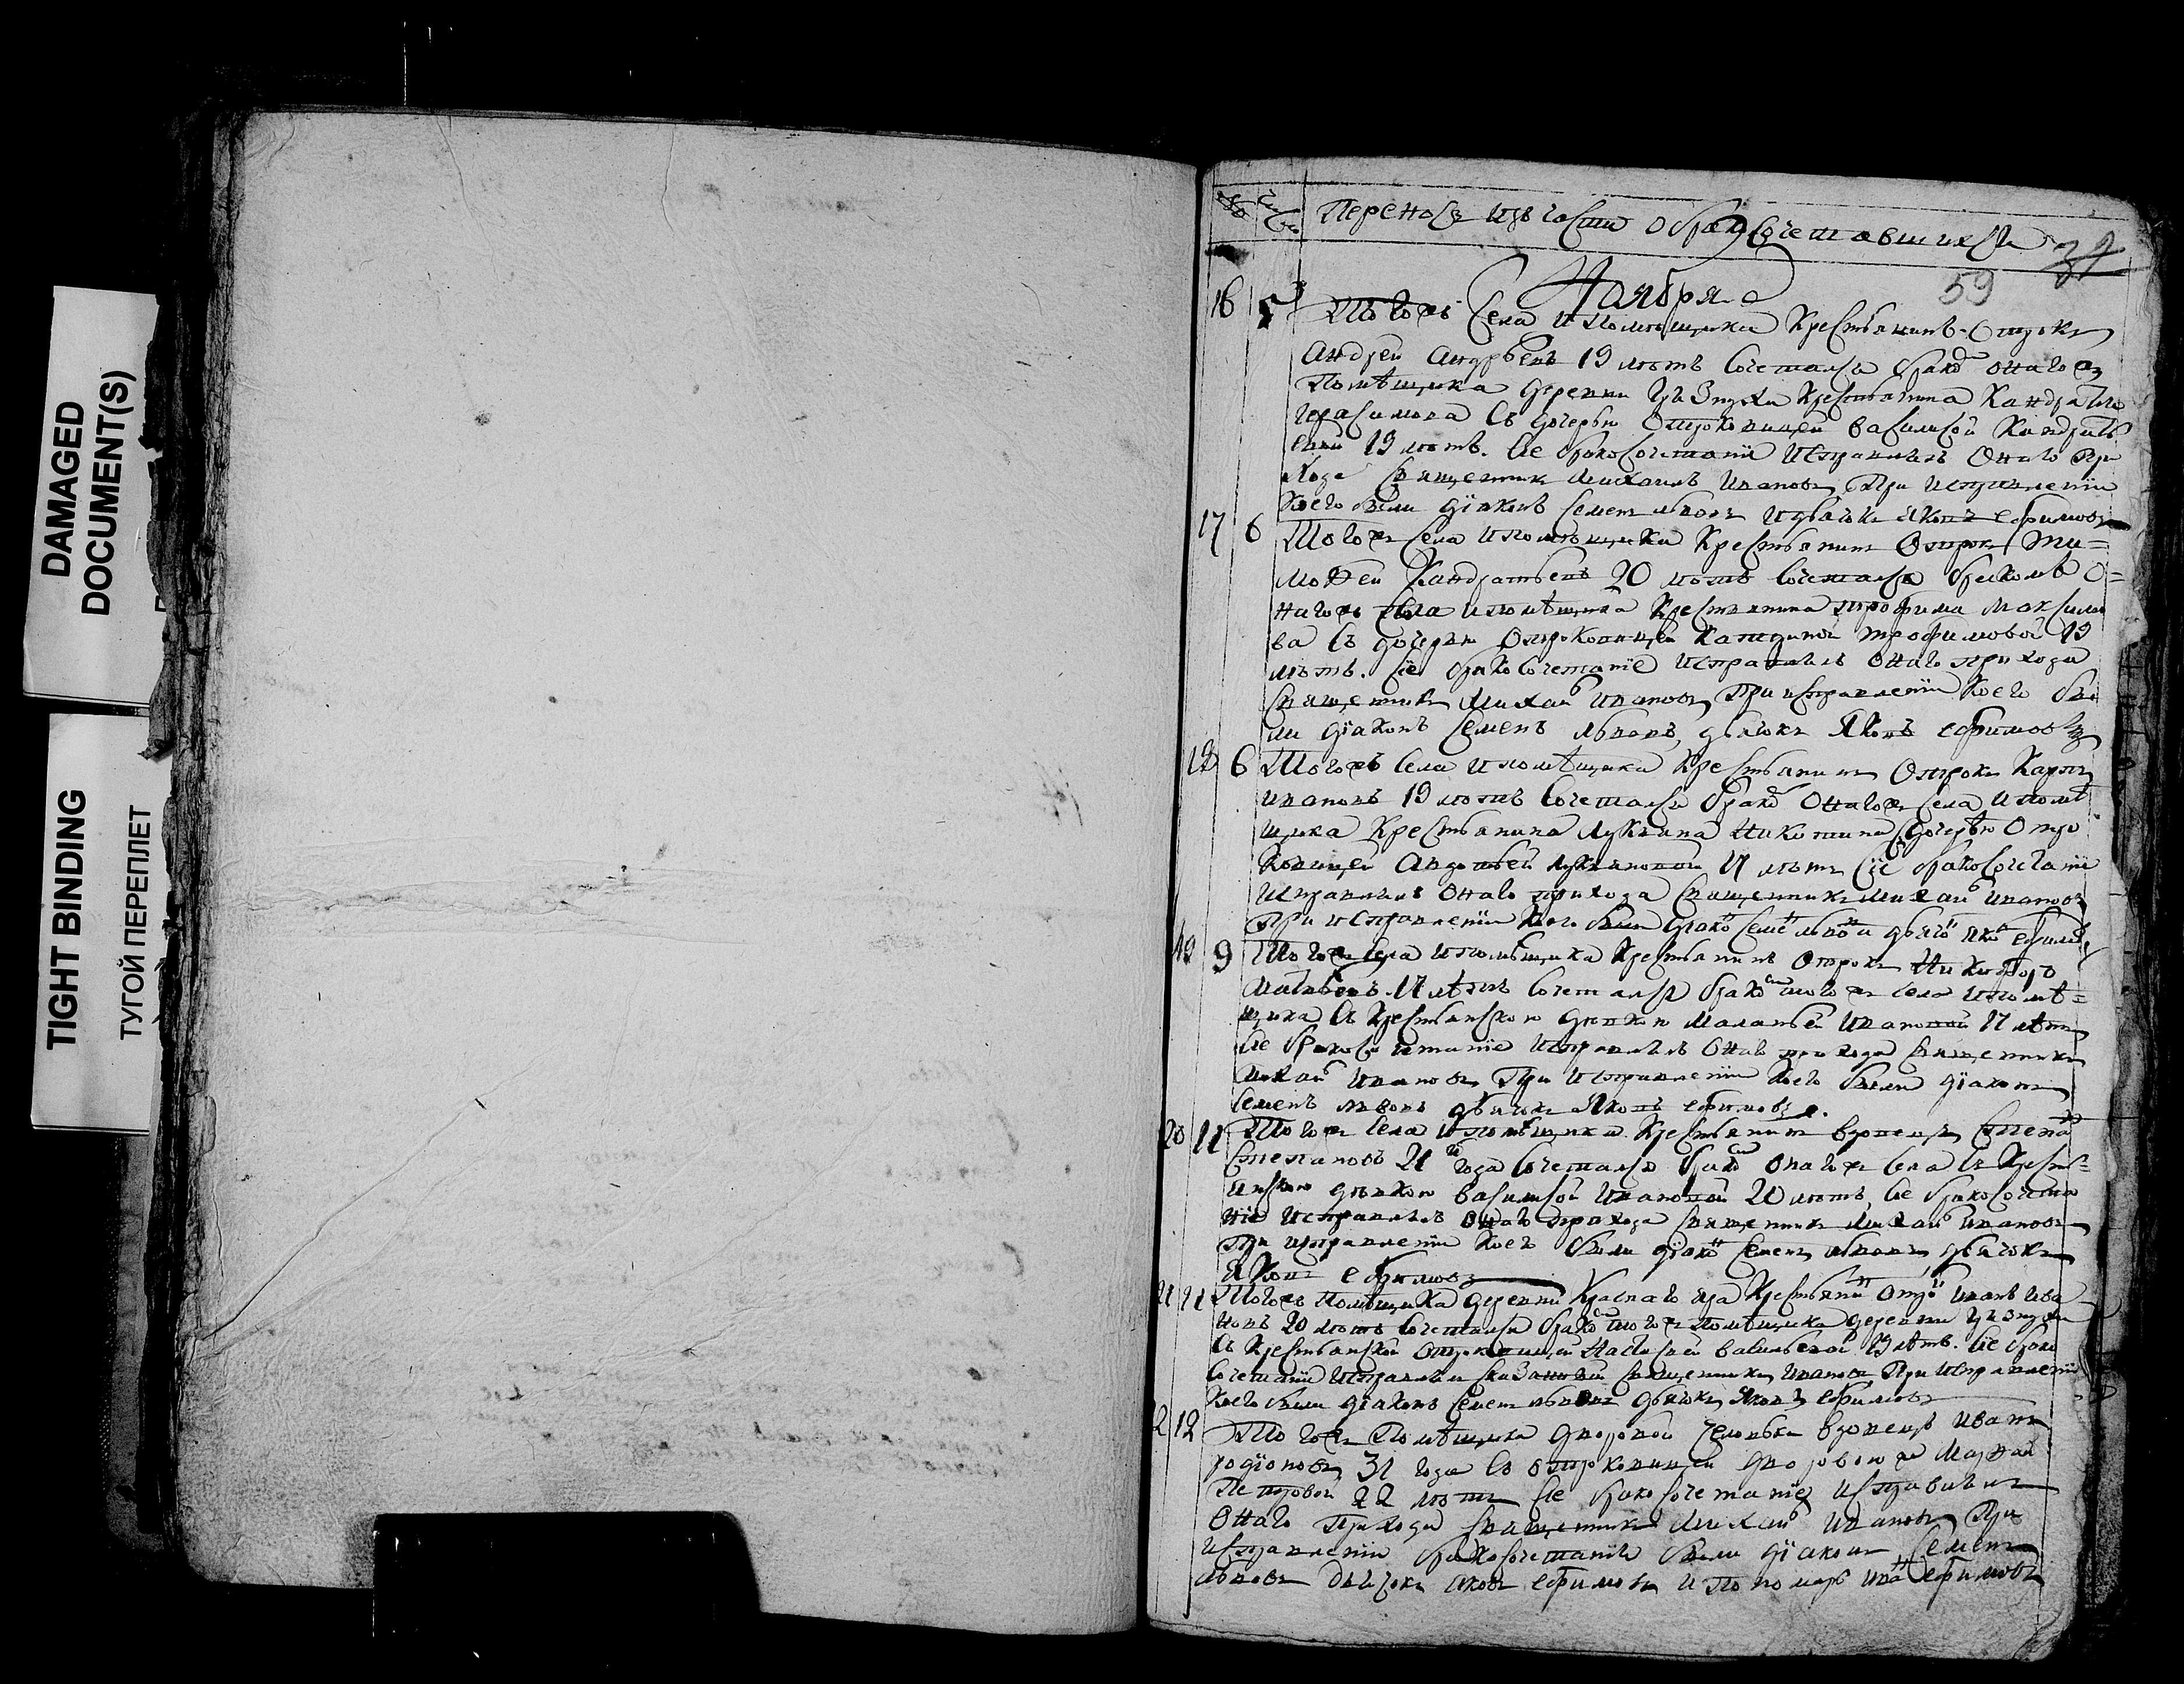 DAMAGED
DOCUMENT(S)
TIGHT BINDING
ТУГОЙ ПЕРЕПЛЕТ
Переносъ изъ части о бракосочетавшихся
59
Ноября
16 5 Тогожъ села и помѣщика крестьянинъ отрокъ
Андрей Андрѣевъ 19 лѣтъ сочетался брако онагожъ
помѣщика деревни крестьянина Кандратья
Герасимова съ дочерью отроковицей Василисой Кандратье
вной 19 лѣтъ. Сіе бракосочетаніе исправлялъ онаго при
хода священникъ Михаилъ Ивановъ при исправленіи
коего были діаконъ Семенъ Львовъ и дьячекъ Яковъ Ефимовъ
17 6 Тогожъ села и помѣщика крестьянинъ отрокъ Ти=
мофей Кандратьевъ 20 лѣтъ сочетался бракомъ о=
нагожъ села и помѣщика крестьянина Трофима Максимо
ва съ дочерью отроковицей Катериной Трофимовой 19
лѣтъ. Сіе бракосочетаніе исправлялъ онаго прихода
священникъ Михаи Ивановъ при исправленіи коего бы
ли діаконъ Семенъ Львовъ, дьячокъ Яковъ Ефимовъ
18 6 Тогожъ села и помѣщика крестьянинъ отрокъ Карпъ
Ивановъ 19 лѣтъ сочетался брако онагожъ села и помѣ
щика крестьянина Лукьяна Никитина дочерью отро
ковицей Авдотьей Лукьяновой 17 лѣтъ сіе бракосочетаніе
исправлялъ онаго прихода священникъ Михаи Ивановъ
при исправленіи коего были діако Семе Льво и дьячо Яко Ефимо
19 9 Тогожъ села и помѣщика крестьянинъ отрокъ Никифоръ
Матвѣевъ 17 лѣтъ сочетался брако тогожъ села и помѣ=
щика съ крестьянскою дѣвкою Маланьей Ивановой 17 лѣтъ
сіе бракосочетаніе исправлялъ онаго прихода священникъ
Михаи Ивановъ при исправленіи коего были діаконъ
Семенъ Львовъ дьячокъ Яковъ Ефимовъ.
20 11 Тогожъ села и помѣщика крестьянинъ вдовецъ Степа
Степановъ 21 года сочетался брако онагожъ села съ кресть=
янскою дѣвкою Василисой Ивановой 20 лѣтъ, сіе бракосочета
ніе исправлялъ онаго прихода священникъ Михаи Ивановъ
при исправленіи коего были діако Семенъ Львовъ дьячокъ
Яковъ Ефимовъ
21 11 Тогожъ помѣщика деревни Краснаго Яра крестьяни отро Иванъ Ива
новъ 20 лѣтъ сочетался брако тогожъ помѣщика деревни
съ крестьянской отроковицей Настасьей Васильевой 19 лѣтъ. Сіе брако
сочетаніе исправлялъ священникъ Ивановъ при исправленіи
коего были діаконъ Семенъ Львовъ дьячокъ Яковъ Ефимовъ
22 12 Тогожъ помѣщика дворовой человѣкъ вдовецъ Иванъ
Родіоновъ 31 года съ отроковицей дворовою же Марѳой
Петровой 22 лѣтъ сіе бракосочетаніе исправлялъ
онаго прихода священникъ Михаи Ивановъ при
исправленіи бракосочетанія были діаконъ Семенъ
Львовъ дьячокъ Яковъ Ефимовъ и пономарь Ива Ефимовъ